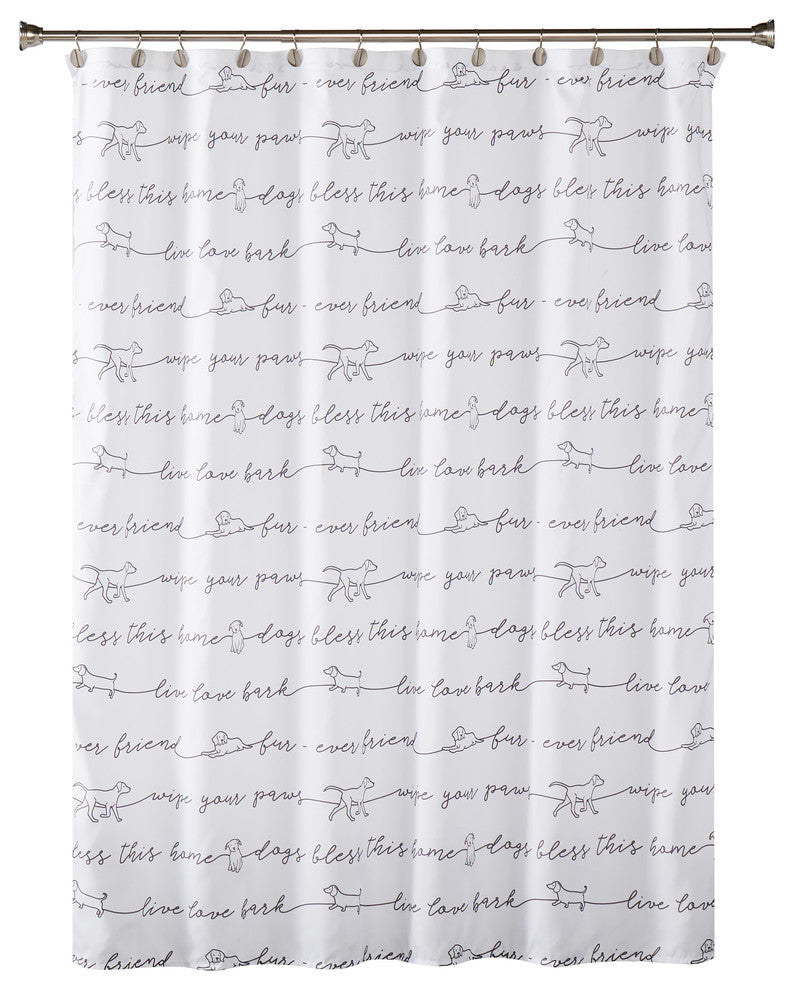 - ever friend fur - ever friend fur - ever friend
wipe your paws wipe your paws wipe your
bless this home dogs bless this home dogs bless this home
live love bark live love bark live love
ever friend fur - ever friend fur - ever friend
wipe your paws wipe your paws wipe your
bless this home dogs bless this home dogs bless this home
live love bark live love bark live love
ever friend fur - ever friend fur - ever friend
wipe your paws wipe your paws wipe your
less this home dogs bless this home dogs bless this home
live love bark live love bark live love
ver friend fur - ever friend fur - ever friend
wipe your paws wipe your paws wipe your
ess this home dogs bless this home dogs bless this home
live love bark live love bark live love
ver friend fur - ever friend fur - ever friend